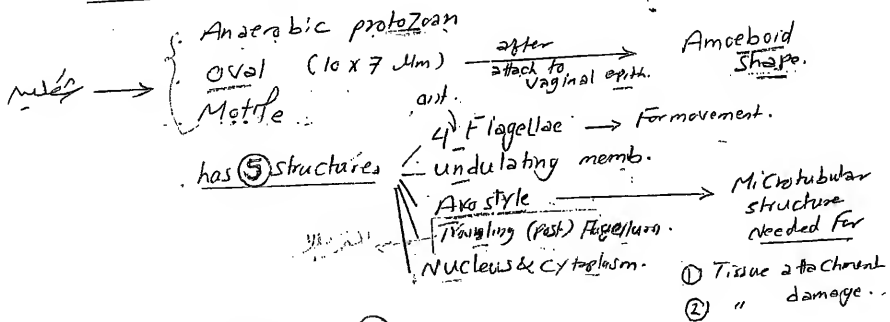 Anaerobic protozoan
oval (10 x 7 Mm) after attach to vaginal epith. Amoeboid shape.
Motile
has 5 structures
4 ant. Flagellae → For movement.
undulating memb.
Axostyle → Microtubular structure needed For
(post) Flagellum.
Nucleus & cytoplasm.
① Tissue attachment
② " damage.